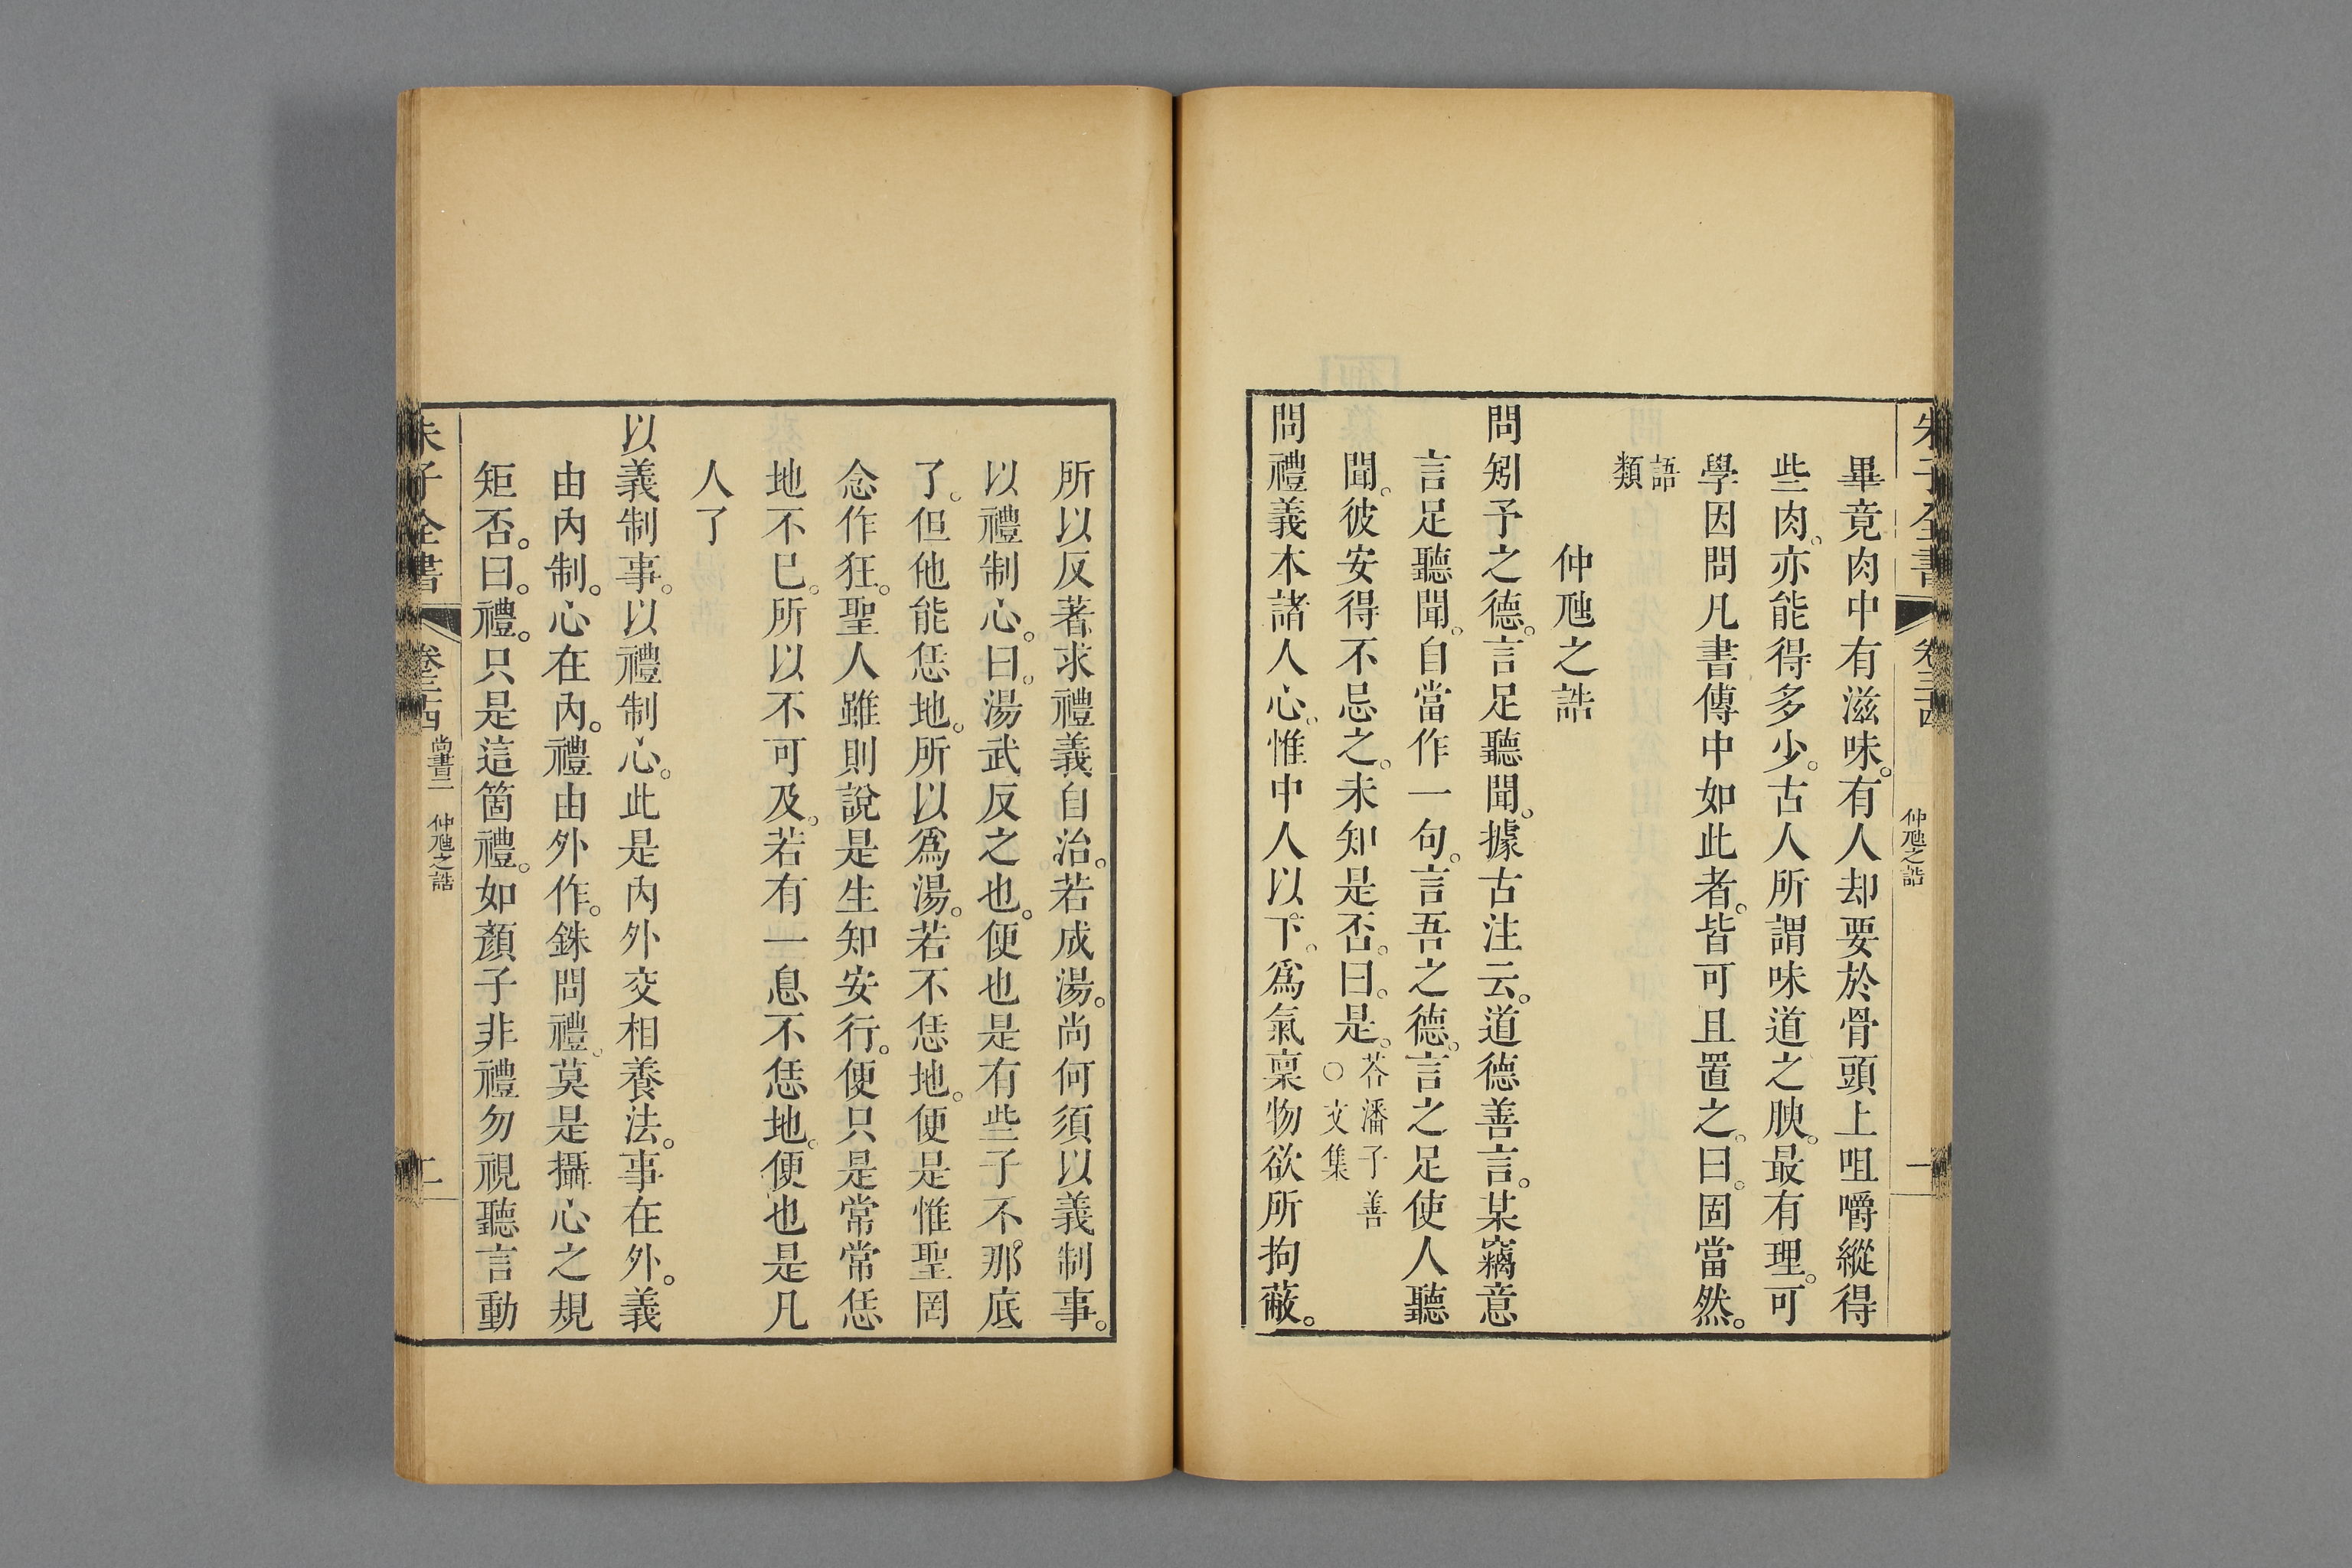 朱子全書 卷三十四 仲虺之誥 一
畢竟肉中有滋味。有人却要於骨頭上咀嚼縱得
些肉。亦能得多少。古人所謂味道之腴。最有理。可
學因問凡書傳中如此者。皆可且置之。曰。固當然。
語類
仲虺之誥
問矧予之德。言足聽聞。據古注云。道德善言。某竊意
言足聽聞。自當作一句。言吾之德。言之足使人聽
聞。彼安得不忌之。未知是否。曰。是。荅潘子善○文集
問禮義本諸人心。惟中人以下。爲氣稟物欲所拘蔽。
所以反著求禮義自治。若成湯。尚何須以義制事。
以禮制心。曰。湯武反之也。便也是有些子不那底
了。但他能恁地。所以爲湯。若不恁地。便是惟聖罔
念作狂。聖人雖則說是生知安行。便只是常常恁
地不已。所以不可及。若有一息不恁地。便也是凡
人了
以義制事。以禮制心。此是內外交相養法。事在外。義
由內制。心在內。禮由外作。銖問禮。莫是攝心之規
矩否。曰。禮。只是這箇禮。如顏子非禮勿視聽言動
朱子全書 卷三十四 尚書二 仲虺之誥 二